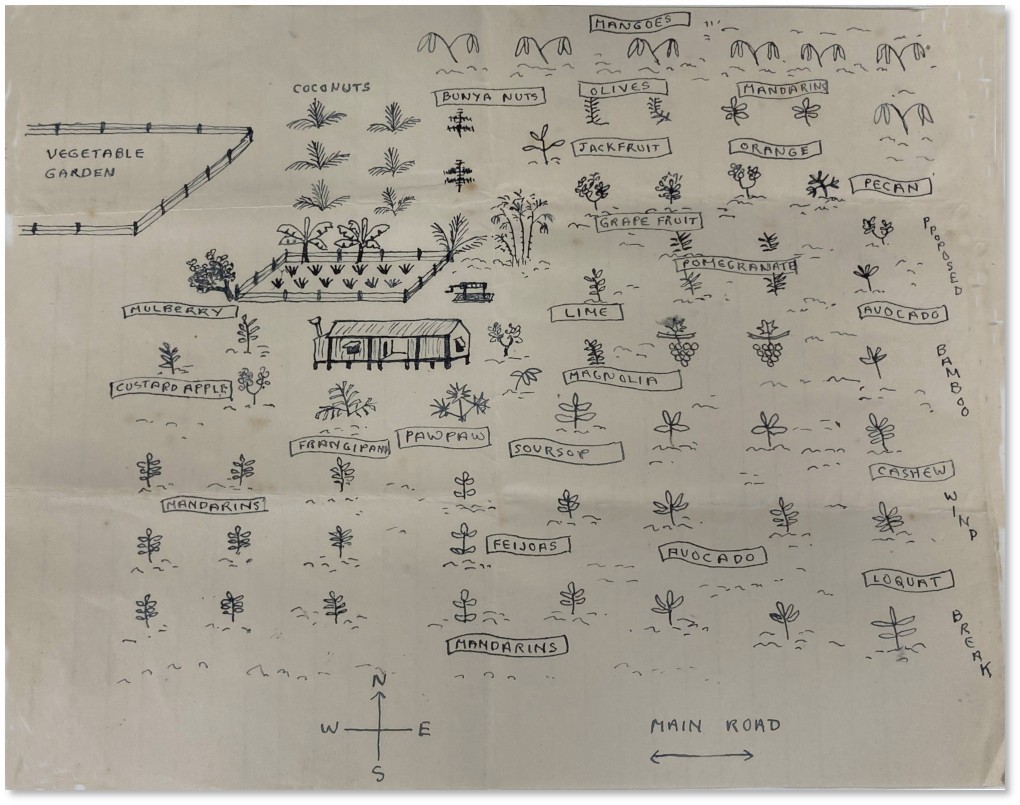 MANGOES
COCONUTS
BUNYA NUTS
OLIVES
MANDARINS
VEGETABLE
GARDEN
JACKFRUIT
ORANGE
PECAN
GRAPE FRUIT
POMEGRANATE
MULBERRY
LIME
AVOCADO
CUSTARD APPLE
MAGNOLIA
FRANGIPANI
PAWPAW
SOURSOP
CASHEW
MANDARINS
FEIJOAS
AVOCADO
LOQUAT
MANDARINS
PROPOSED
BAMBOO
WIND
BREAK
N
W E
S
MAIN ROAD